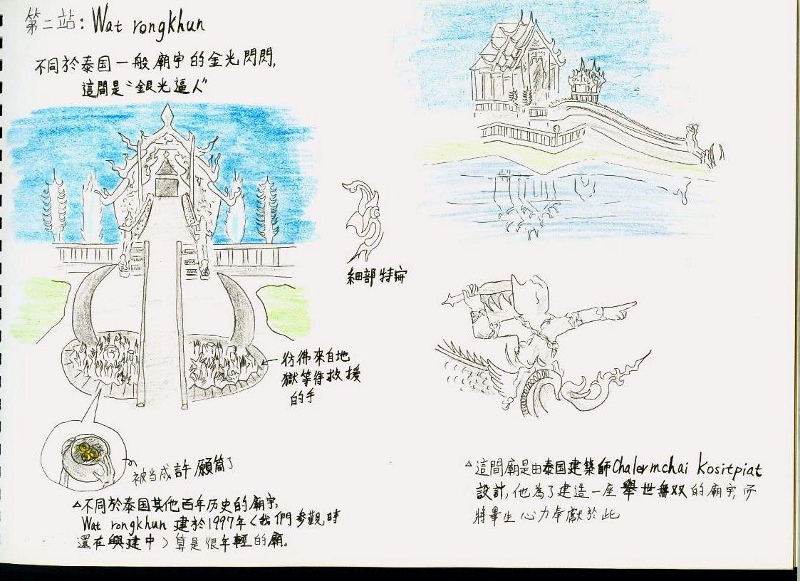 第二站: Wat rongkhun
不同於泰国一般廟宇的金光閃閃,
這間是“銀光逼人”
細部特寫
彷彿來自地
獄等待救援
的手
被当成許願筒了
△不同於泰国其他百年历史的廟宇,
Wat rongkhun 建於1997年(我們參觀時
還在興建中)算是很年輕的廟.
△這間廟是由泰國建築師Chalermchai kositpiat
設計,他為了建造一座舉世無双的廟宇而
將畢生心力奉獻於此